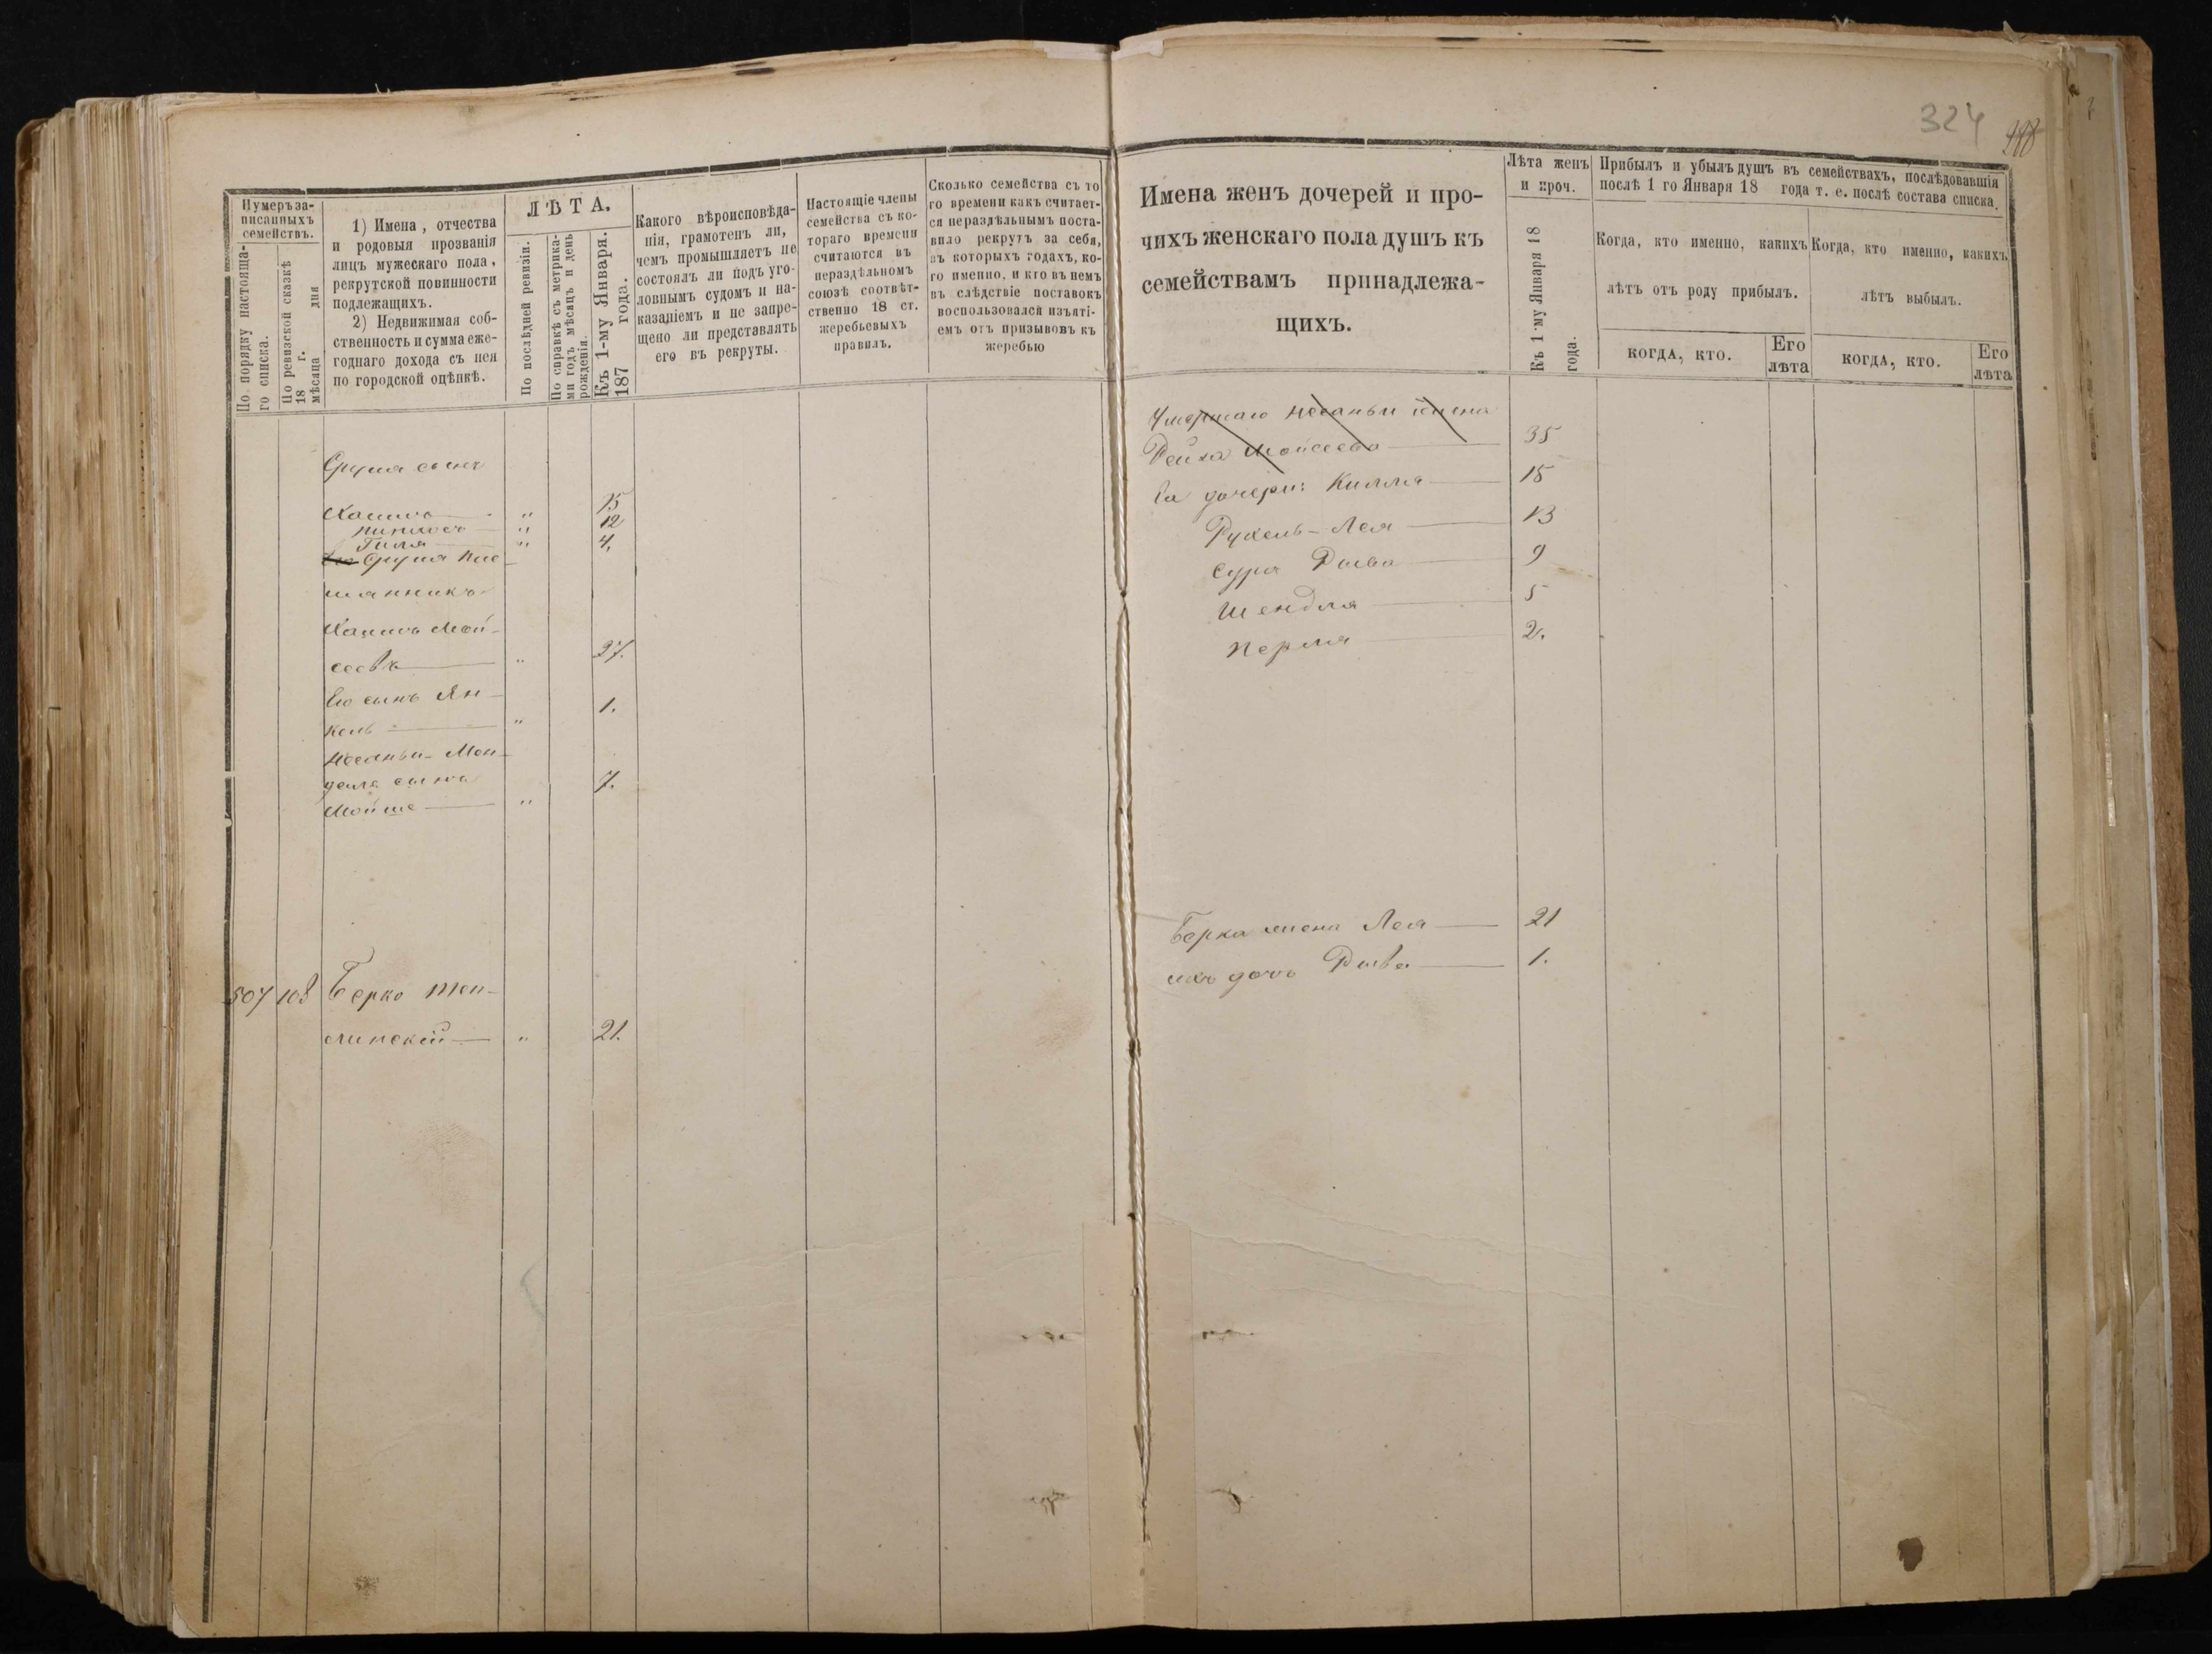 324
Нумеръ за-
писанныхъ
семействъ.
По порядку настояща-
го списка.
По ревизской сказкѣ
18 г.
мѣсяца дня
1) Имена, отчества
и родовыя прозванія
лицъ мужескаго пола,
рекрутской повинности
подлежащихъ.
2) Недвижимая соб-
ственность и сумма еже-
годнаго дохода съ нея
по городской оцѣнкѣ.
ЛѢТА.
По послѣдней ревизіи.
По справкѣ съ метрика-
ми годъ мѣсяцъ и день
рожденія.
Къ 1-му Января.
187 года.
Какого вѣроисповѣда-
нія, грамотенъ ли,
чемъ промышляетъ не
состоялъ ли подъ уго-
ловнымъ судомъ и на-
казаніемъ и не запре-
щено ли представлять
его въ рекруты.
Настоящіе члены
семейства съ ко-
тораго времени
считаются въ
нераздѣльномъ
союзѣ соотвѣт-
ственно 18 ст.
жеребьевыхъ
правилъ.
Сколько семейства съ то
го времени какъ считает-
ся нераздѣльнымъ поста-
вило рекрутъ за себя,
въ которыхъ годахъ, ко-
го именно, и кто въ немъ
въ слѣдствіе поставокъ
воспользовался изъяті-
емъ отъ призывовъ къ
жеребью
Сруля сынъ
Хаимъ " 15
Пинхосъ " 12
Гиля " 4.
Сруля пле
мянникъ
Хаимъ Мой-
сеевъ " 27.
Его сынъ Ян-
кель " 1.
Мен-
деля сынъ
Мойше " 7.
507 108 Берко Теп-
линскій " 21.
Имена женъ дочерей и про-
чихъ женскаго пола душъ къ
семействамъ принадлежа-
щихъ.
Лѣта женъ
и проч.
Къ 1-му Января 18
года.
Прибылъ и убылъ душъ въ семействахъ, послѣдовавшія
послѣ 1 го Января 18 года т. е. послѣ состава списка.
Когда, кто именно, какихъ
лѣтъ отъ роду прибылъ.
когда, кто.
Его
лѣта
Когда, кто именно, какихъ
лѣтъ выбылъ.
когда, кто.
Его
лѣта
Умершаго жена
Рейза Мойсеева 35
Ея дочери: Килля 15
Рухель-Лея 13
Сура Рыва 9
Шендля 5
Перля 2.
Берка жена Лея 21
ихъ дочь Рыва 1.